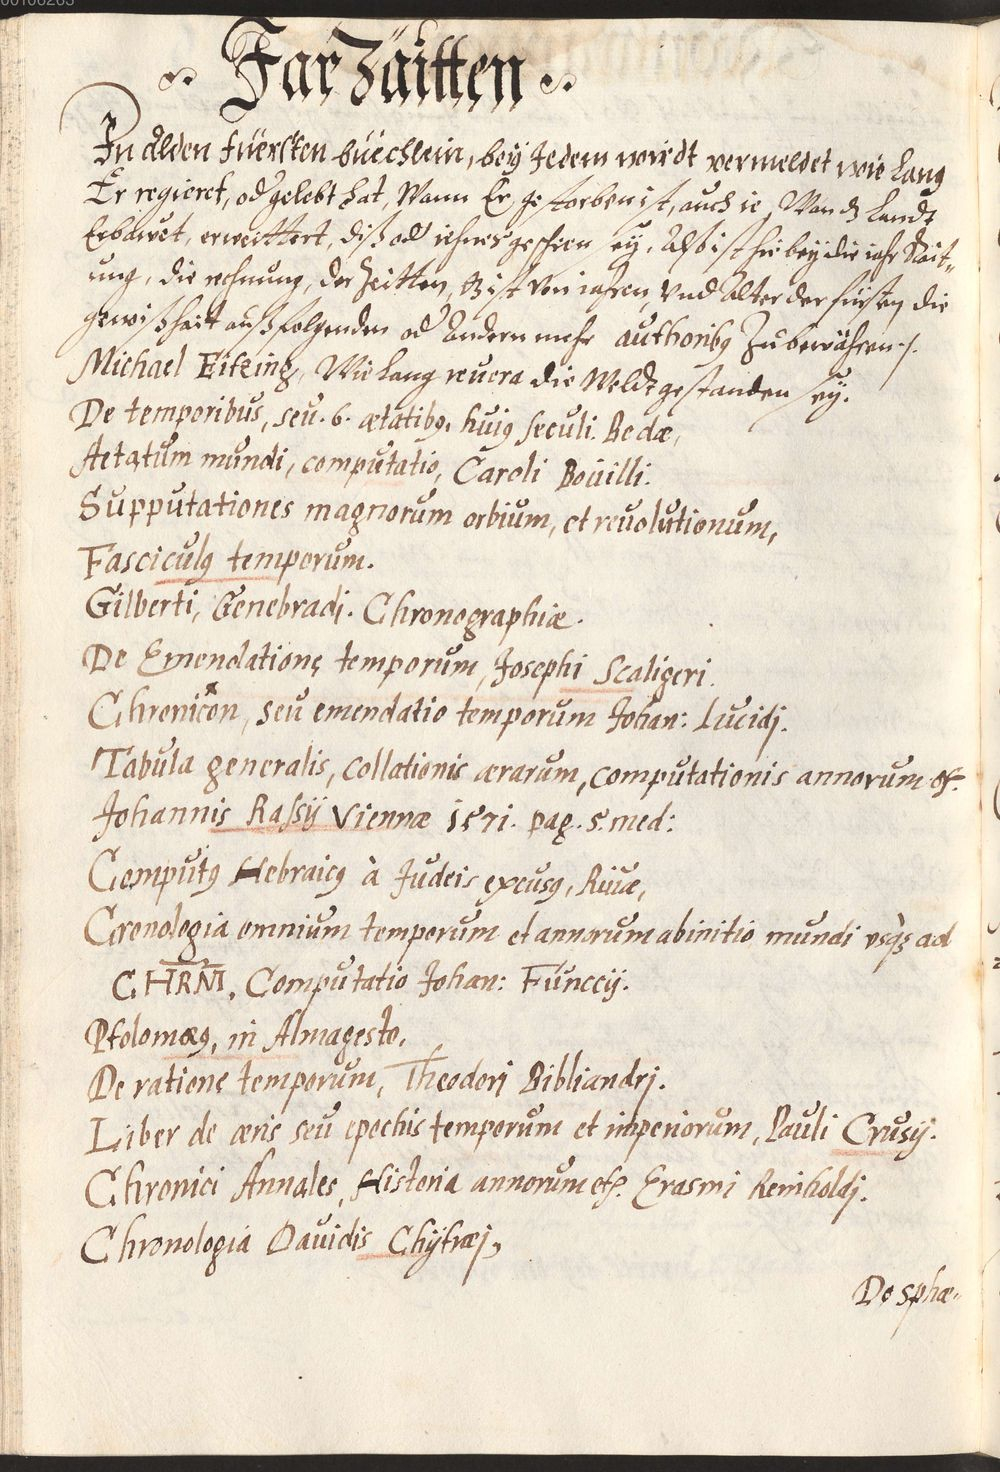 00106265
Jar Zäitten
In Alden fuërsten buëchlein, beÿ Jedem wirdt vermeldet wie Lang
Er regieret, od gelebt hat, Wann Er gestorben ist, auch ie Wan dz Landt
Erbawet, erweittert, diß od iehnes geschen seÿ, Also ist hie beÿ die iahr Rait-
ung, die rechnung, der Zeitten, dz ist von iahren, Vnd Alter der fürsten die
gewißhait auß folgenden od Andern mehr authoribꝰ Zubewähren ./.
Michael Eitzing, Wie lang reuera die Weldt gestanden seÿ.
De temporibus, seu .6. ætatibꝰ. huiꝰ seculi. Bedæ,
Aetatum mundi, computatio, Caroli Bouilli.
Supputationes magnorum orbium, et reuolutionum,
Fasciculꝰ temporum.
Gilberti, Genebradj. Chronographiæ.
De Emendatione temporum, Josephi Scaligeri.
Chronicon, seu emendatio temporum Johan: Lucidj.
Tabula generalis, collationis ærarum, computationis annorum etc.
Johannis Rassÿ Viennæ 1571. pag. 5. med:
Computꝰ Hebraicꝰ à Judeis excusꝰ, Riuæ,
Cronologia omnium temporum et annorum ab initio mundi vsqꝫ ad
CHRM̄, Computatio Johan: Funccÿ.
Ptolomæꝰ, in Almagesto.
De ratione temporum, Theodori Bibliandrj.
Liber de æris seu epochis temporum et imperiorum, Pauli Crusÿ.
Chronici Annales, Historia annorum etc. Erasmi Reinholdj.
Chronologia Dauidis Chÿtræj,
De sphæ-